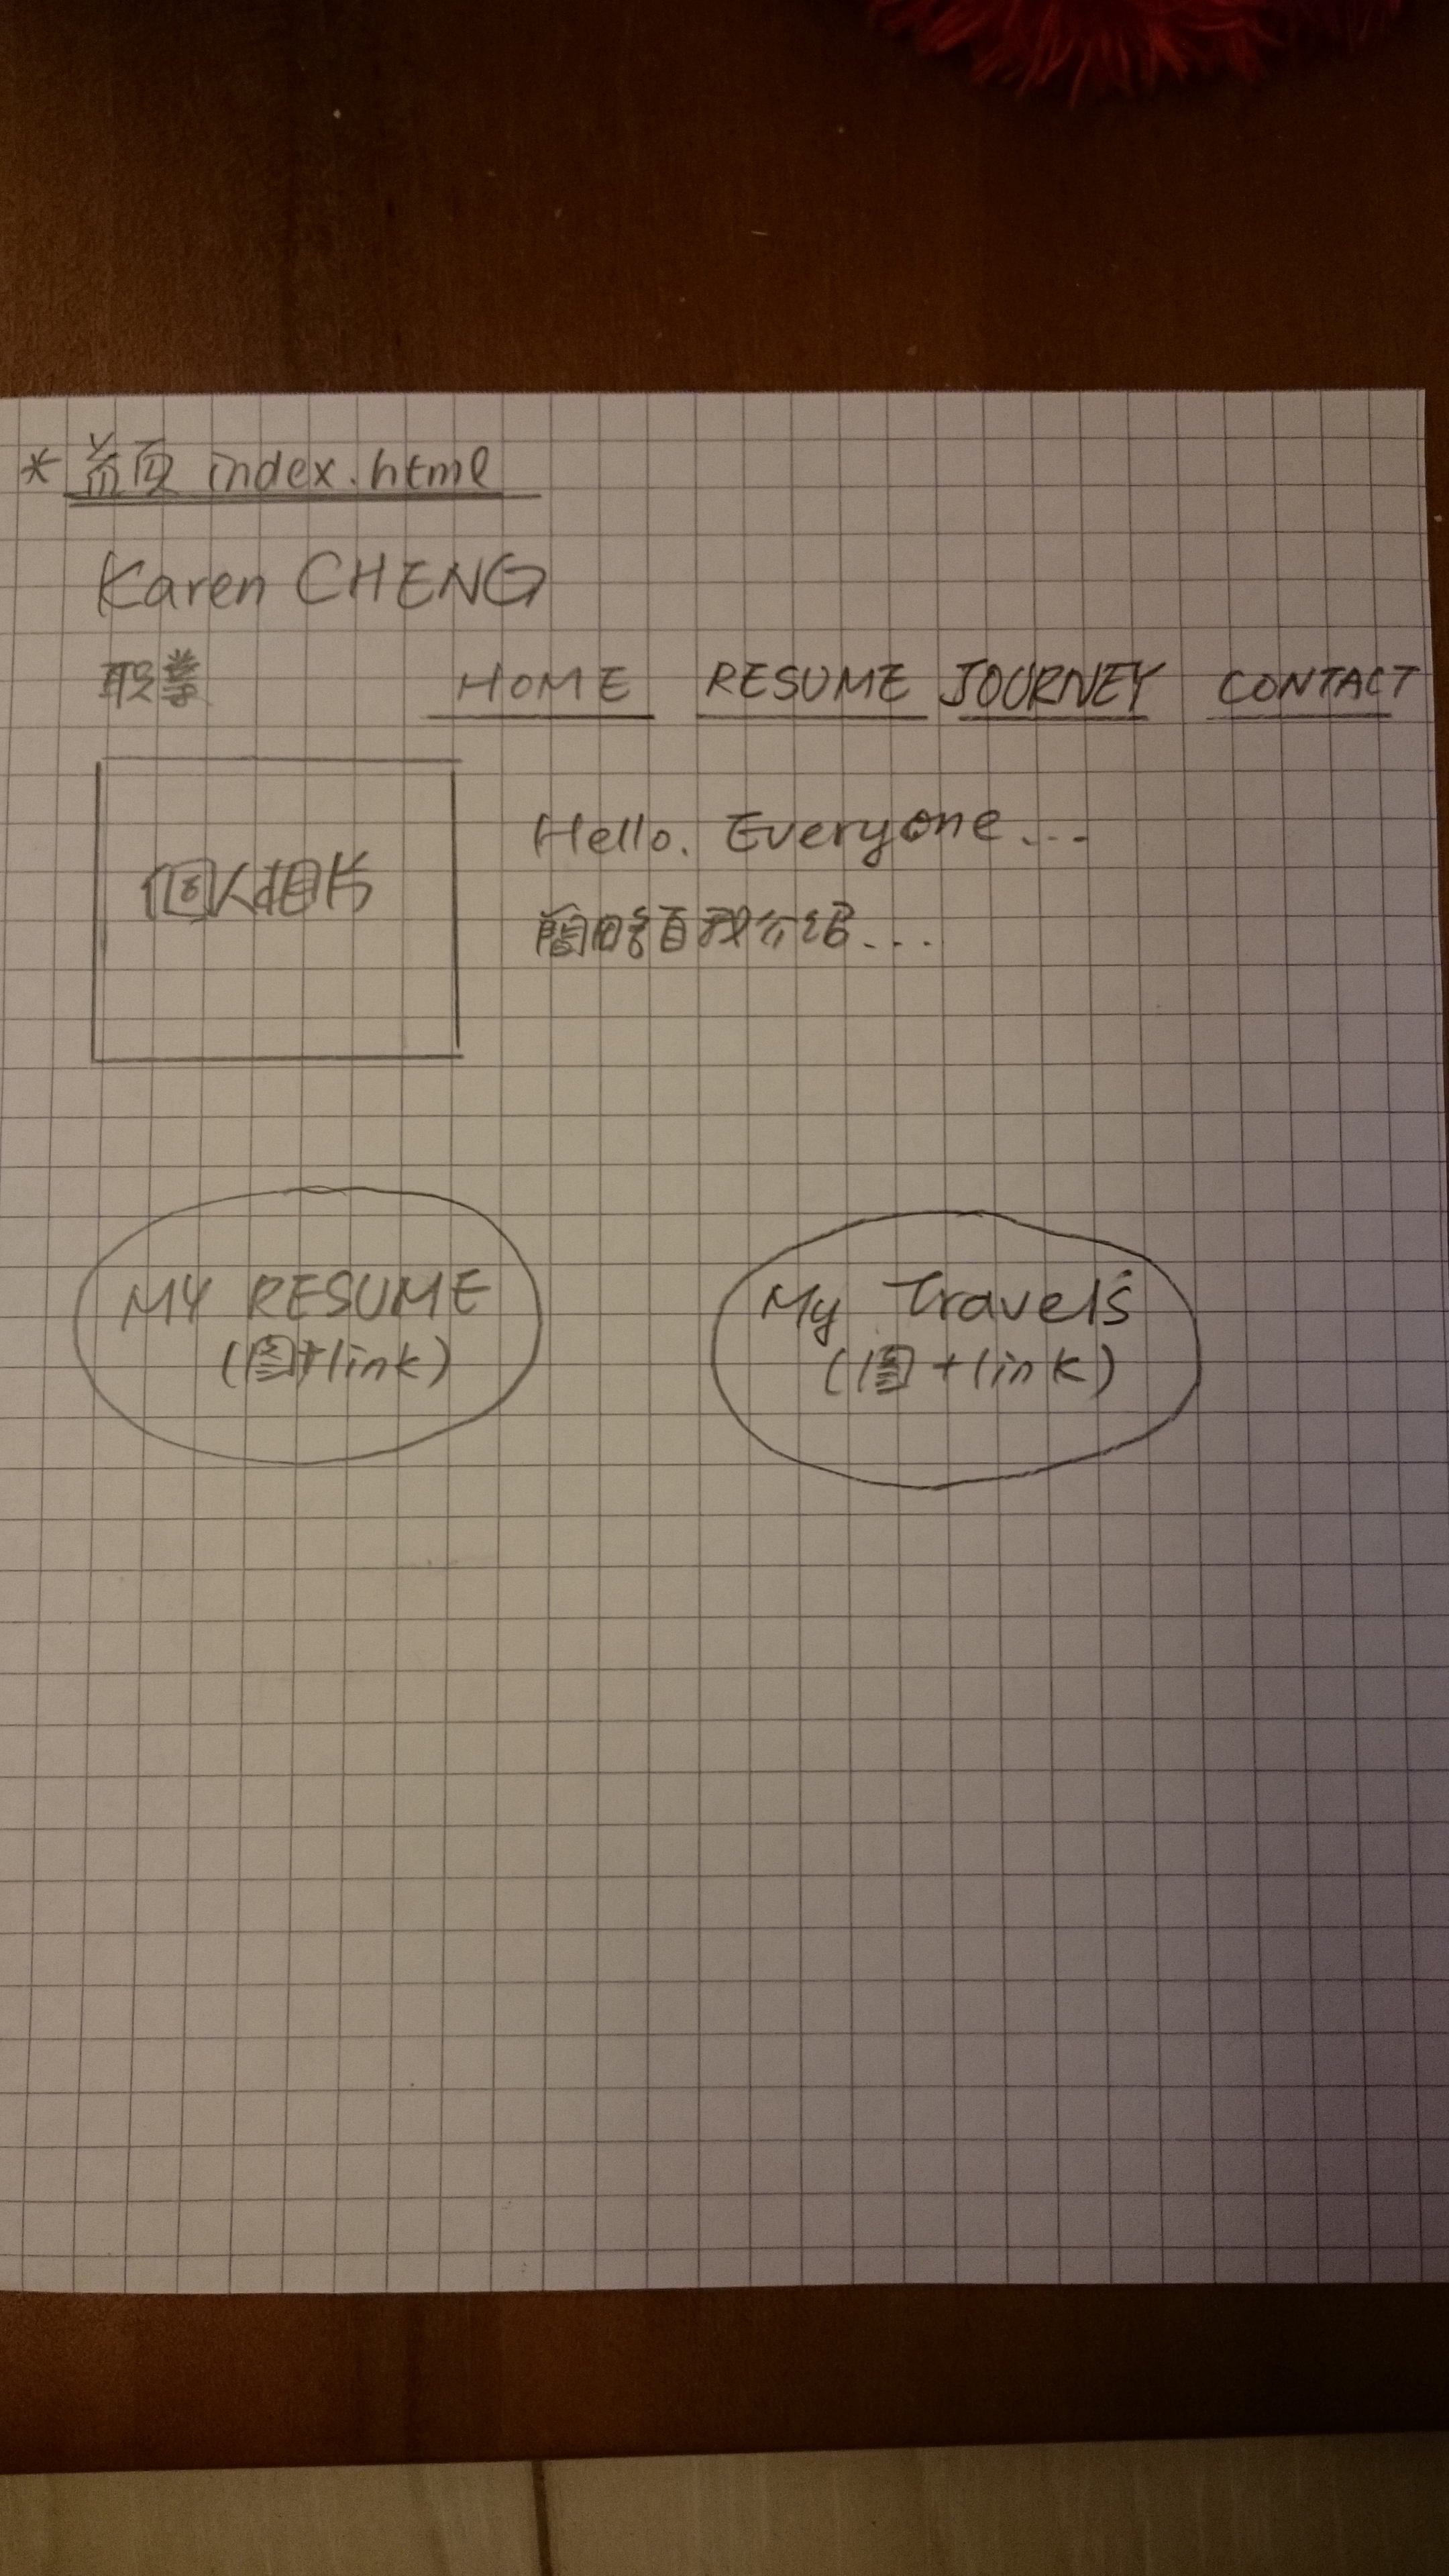 * 首页 index.html
Karen CHENG
职業 HOME RESUME JOURNEY CONTACT
個人相片
Hello. Everyone...
簡略自我介绍....
MY RESUME
(圖+link)
My Travels
(圖+link)